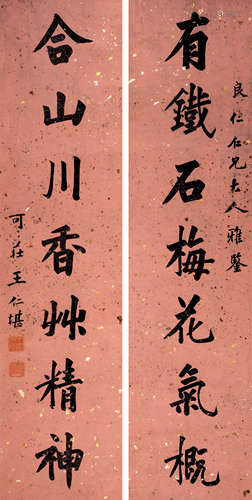 良仁仁兄大人雅鑒
有鐵石梅花氣概
合山川香艸精神
可莊王仁堪